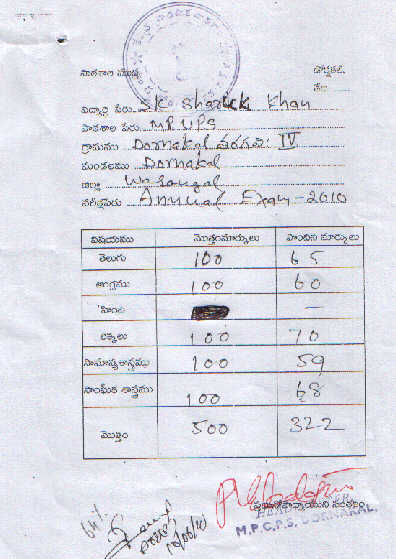 పాఠశాల ముద్ర డోర్నకల్.
తేది
విద్యార్థి పేరు SK Sharuk Khan
పాఠశాల పేరు MPUPS
గ్రామము Dornakal తరగతి: IV
మండలము Dornakal
జిల్లా Warangal
పరీక్షపేరు Annual Exam - 2010
విషయము మొత్తంమార్కులు పొందిన మార్కులు
తెలుగు 100 65
ఆంగ్లము 100 60
హింది —
లెక్కలు 100 70
సామాన్యశాస్త్రము 100 59
సాంఘీక శాస్త్రము 100 68
మొత్తం 500 322
64%
ప్రధానోపాధ్యాయుని సంతకం
M.P.U.P.S. DORNAKAL